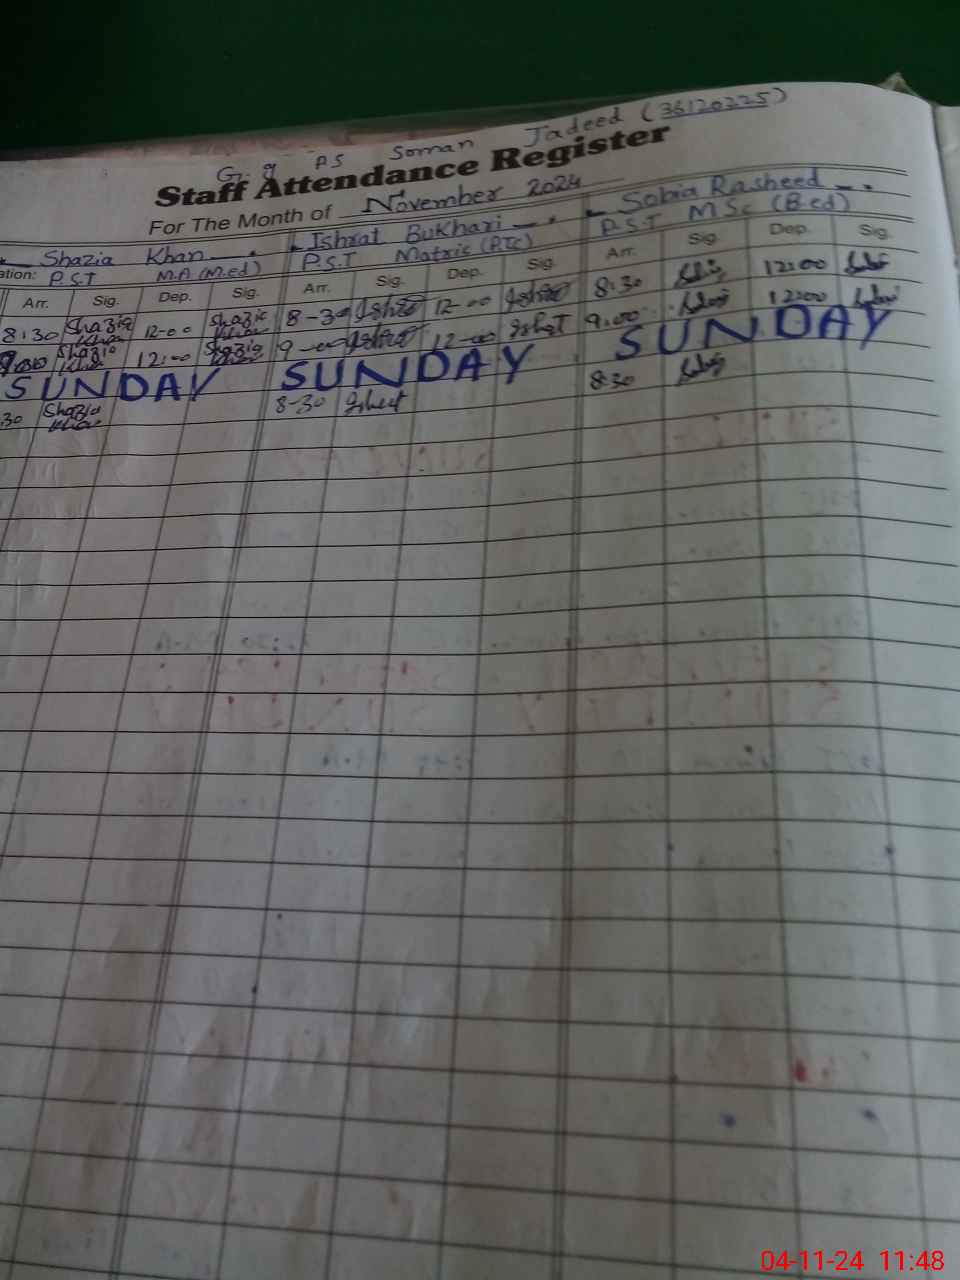 G.g PS Soman Jadeed (36120225)
Staff Attendance Register
For The Month of November 2024
Shazia Khan Ishrat Bukhari Sobia Rasheed
ation: P.S.T M.A (M.ed) P.S.T Matric (PTC) P.S.T MSc (B.ed)
Arr. Sig. Dep. Sig. Arr. Sig. Dep. Sig. Arr. Sig. Dep. Sig.
8:30 Shazia Khan 12-00 Shazia Khan 8-30 12-00 8:30 12:00
9:00 Shazia Khan 12:00 Shazia Khan 9-00 12-00 9:00 12:00
SUNDAY SUNDAY SUNDAY
30 Shazia Khan 8-30 8:30
04-11-24 11:48